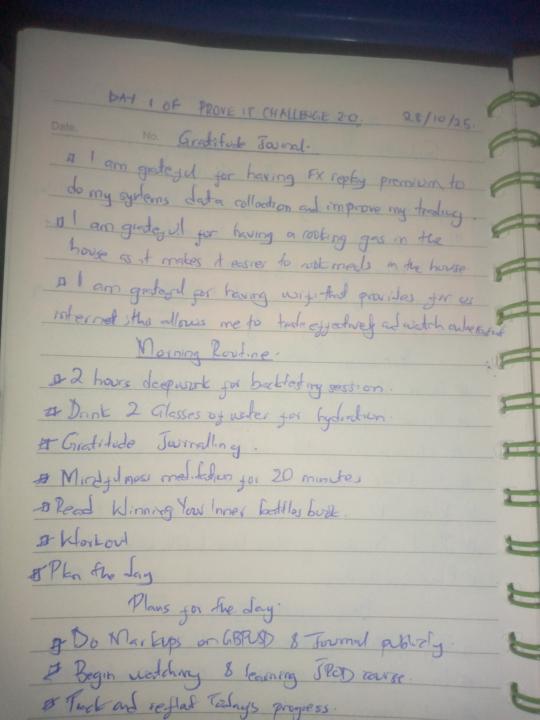 DAY 1 OF PROVE IT CHALLENGE 2.0. 28/10/25.
Date. No. Gratitude Journal.
I am grateful for having FX replay premium to
do my systems data collection and improve my trading.
I am grateful for having a cooking gas in the
house as it makes it easier to cook meals in the house
I am grateful for having wifi that provides for us
internet, this allows me to trade effectively and watch
Morning Routine.
2 hours deepwork for backtesting session.
Drink 2 Glasses of water for hydration.
Gratitude Journalling.
Mindfulness meditation for 20 minutes
Read Winning Your Inner battles book.
Workout
Plan the day
Plans for the day.
Do Markups on GBPUSD & Journal publicly.
Begin watching & learning course.
Track and reflect Todays progress.